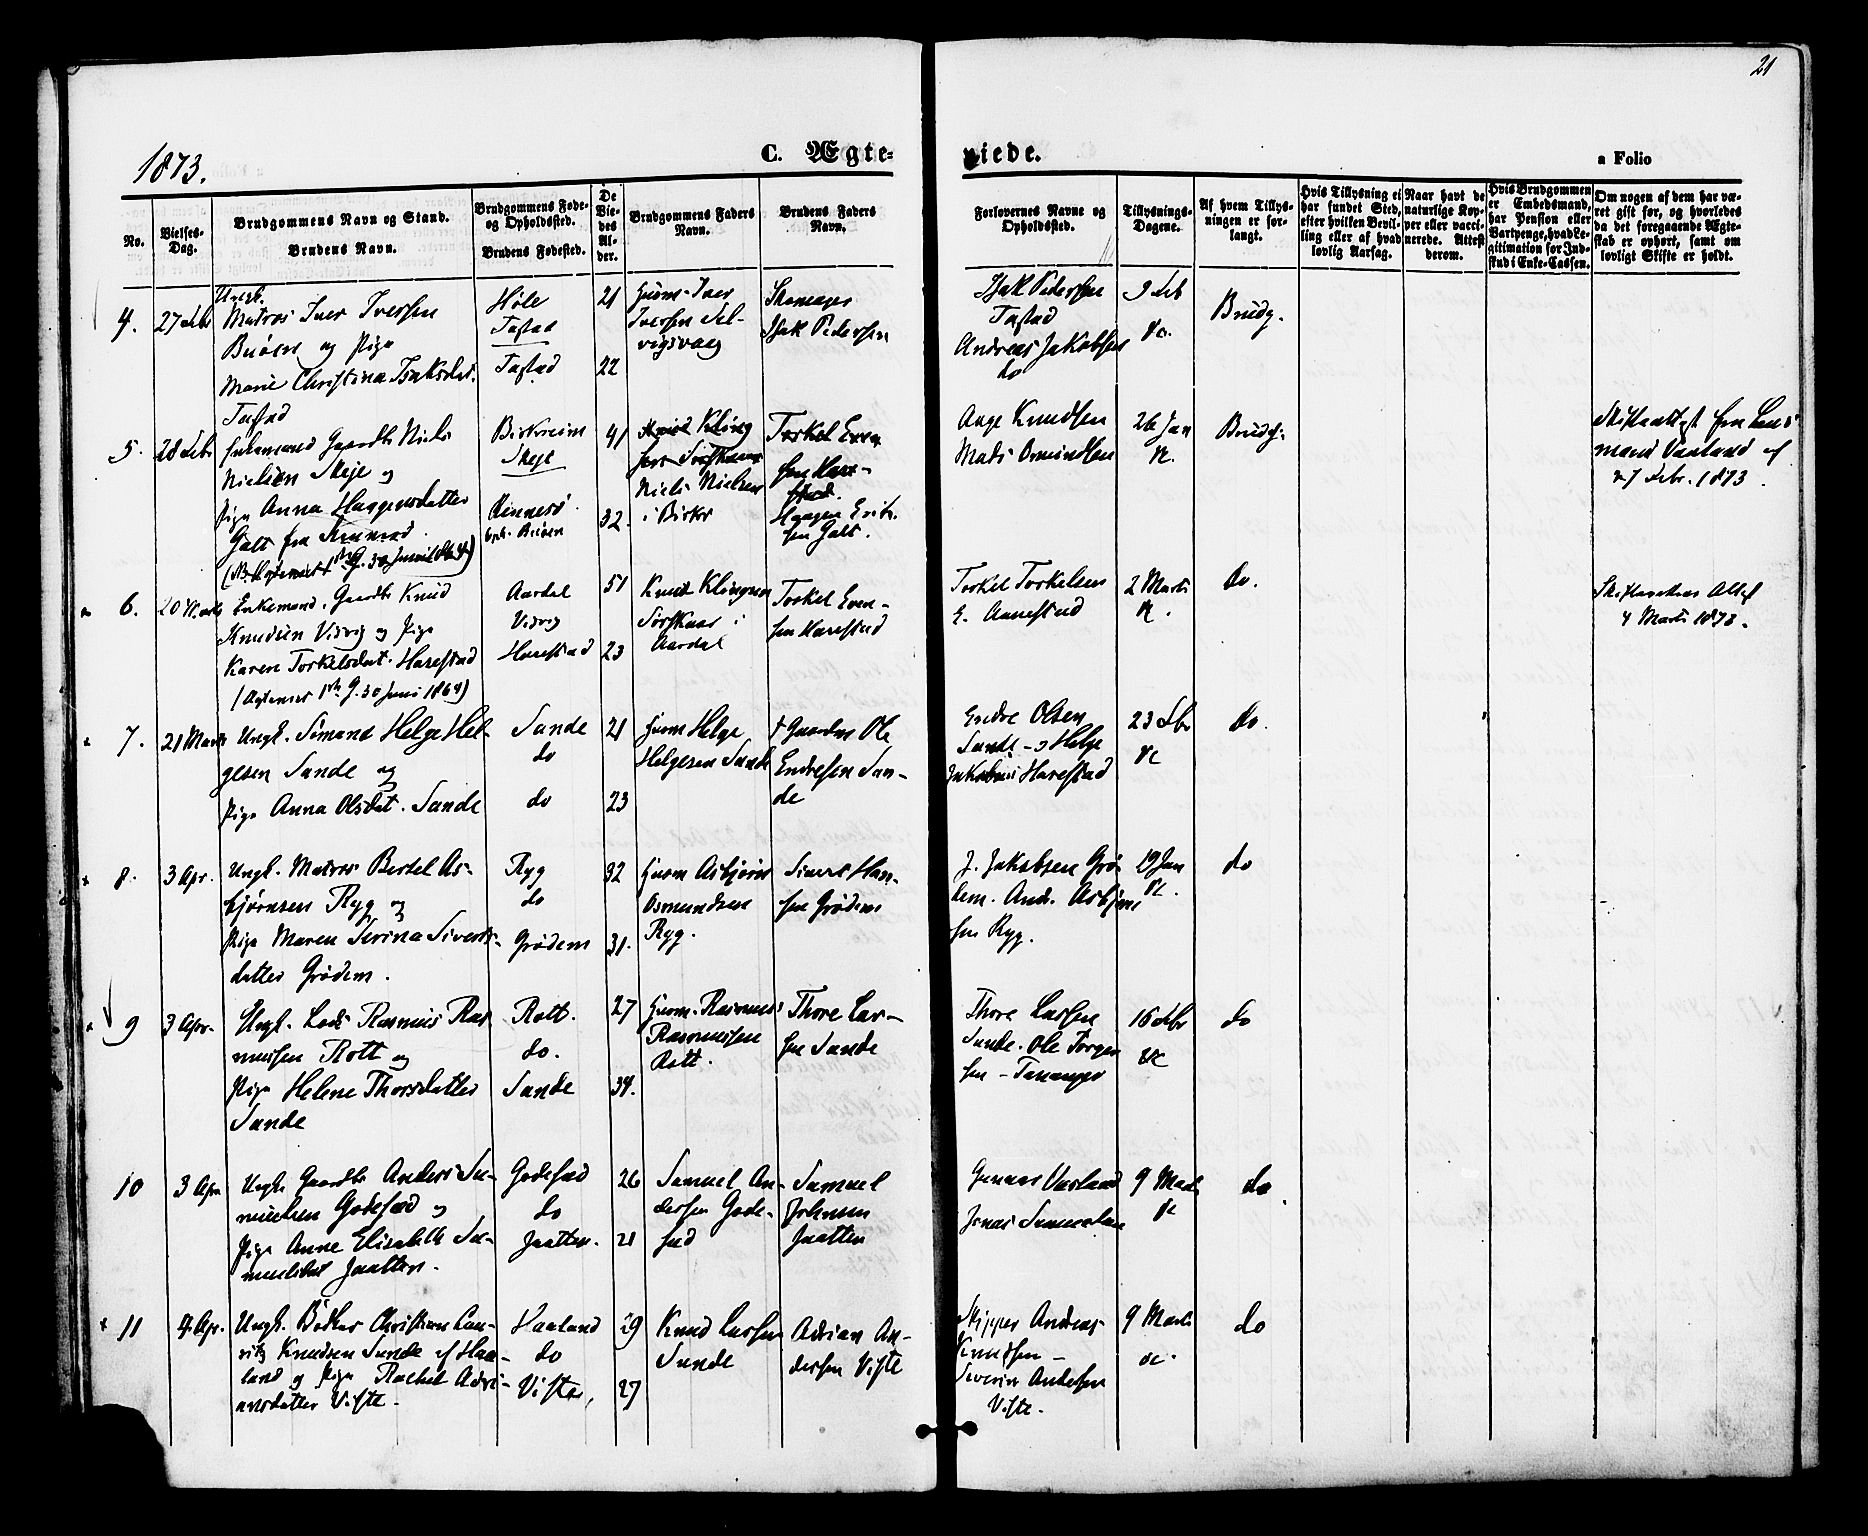 21
1873.
C. Ægte-
viede.
a Folio
No.
Vielses-
Dag.
Brudgommens Navn og Stand.
Brudens Navn.
Brudgommens Føde-
og Opholdssted.
Brudens Fødested.
De
Vie-
des
Al-
der.
Brudgommens Faders
Navn.
Brudens Faders
Navn.
Forlovernes Navne og
Opholdssted.
Tillysnings-
Dagene.
Af hvem Tillys-
ningen er for-
langt.
Hvis Tillysning ei
har fundet Sted,
efter hvilken Bevil-
ling eller af hvad
lovlig Aarsag.
Naar havt de
naturlige Kop-
per eller vacci-
nerede. Attest
derom.
Hvis Brudgommen
er Embedsmand,
har Pension eller
Vartpenge, hvad Le-
gitimation for Ind-
skud i Enke-Cassen.
Om nogen af dem har væ-
ret gift før, og hvorledes
da det foregaaende Ægte-
skab er ophørt, samt om
lovligt Skifte er holdt.
4.
27 Febr
Ungk.
Matros Iver Iversen
Buøen og Pige
Marie Christina Isaksdat.
Tastad
Høle
Tastad
Tastad
21
22
Huusm. Iver
Iversen Sel-
vigsvaag
Skomager
Isak Pedersen
Isak Pedersen
Tastad
Andreas Jakobsen
do
9 Feb
&c.
Brudg.
5.
28 Febr
Enkemand Gaardbr. Niels
Nielsen Skeje og
Pige Anna Haagensdatter
Galt fra
Birkreim
Skeje
Rennesø
Buøen
41
32.
Knud Kling
Niels Nielsen
i Birkr
Torkel Even
sen Hare-
stad.
Haagen Erik-
sen Galt.
Aage Knudsen
Mads Osmundsen
26 Jan
&c.
Brudg.
Skifteattest fra Lens
mand Vaaland af
27 Febr. 1873.
6.
20 Marts
Enkemand. Gaardbr Knud
Knudsen Visvig og Pige
Karen Torkelsdat. Harestad
(Egtemsr 1ste G. 30 Juni 1864)
Aardal
Visvig
Harestad
51
23
Knud Klingsen
Sørskaar i
Aardal
Torkel Even-
sen Harestad
Torkel Torkelsen
E. Aanestad
2 Marts
&c.
do.
Skifterettens Attest
4 Marts 1873.
7.
21 Marts
Ungk. Sømand Helge Hel-
gesen Sande og
Pige Anna Olsdat. Sande
Sande
do
do
21
23
Huusm Helge
Helgesen Sande
† Gaardm Ole
Endresen San-
de
Endre Olsen
Sande - og Helge
Jakobsen Harestad
23 Febr
&c
do.
8.
3 Apr.
Ungk. Matros Bertel As-
bjørnsen Ryg og
Pige Maren Serina Siverts-
datter Grødem.
Ryg
do
Grødem
32
31.
Huusm Asbjørn
Osmundsen
Ryg.
Sivert Han-
sen Grødem
J. Jakobsen Grø
dem. And. Asbjørn
sen Ryg.
19 Jan
&c.
do
9
3 Apr.
Ungk. Lods Rasmus Ras
mussen Rott og
Pige Helene Thorsdatter
Sande
Rott.
do.
Sande
27
34.
Huusm. Rasmus
Rasmussen
Rott.
Thore Lar-
sen Sande
Thore Larsen
Sande. Ole Torger
sen - Tananger
16 Febr
&c
do
10
3 Apr
Ungk. Gaardbr Anders Sa-
muelsen Godesæd og
Pige Anne Elisabeth Sa-
muelsdat Jaatten.
Godesæd
do
Jaatten.
26
21
Samuel An-
dersen Gode-
sæd
Samuel
Johnsen
Jaatten
Gunnar Vasland
Jonas Samuelsen
9 Marts
&c
do
11
4 Apr.
Ungk. Bødker Christian Lau-
rits Knudsen Sande af Haa-
land og Pige Rachel Adri-
ansdatter Viste.
Haaland
do
Viste,
29
27
Knud Larsen
Sande
Adrian An-
dersen Viste
Skipper Andreas
Knudsen -
Severin Andersen
Viste.
9 Marts
&c.
do